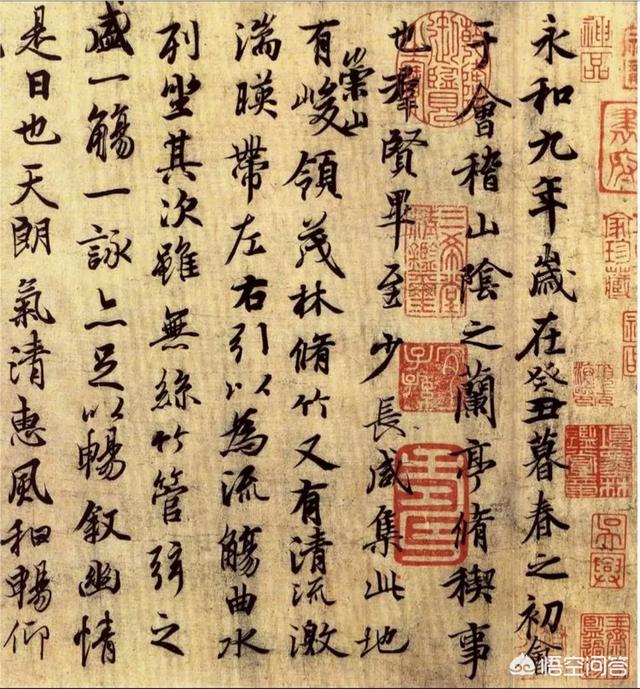 永和九年歲在癸丑暮春之初會
于會稽山陰之蘭亭脩稧事
也羣賢畢至少長咸集此地
有崇山峻領茂林脩竹又有清流激
湍暎帶左右引以為流觴曲水
列坐其次雖無絲竹管弦之
盛一觴一詠亦足以暢敘幽情
是日也天朗氣清惠風和暢仰
神品
書府
家珍藏
三希堂精鑑璽
宜子孫
吳興
悟空问答